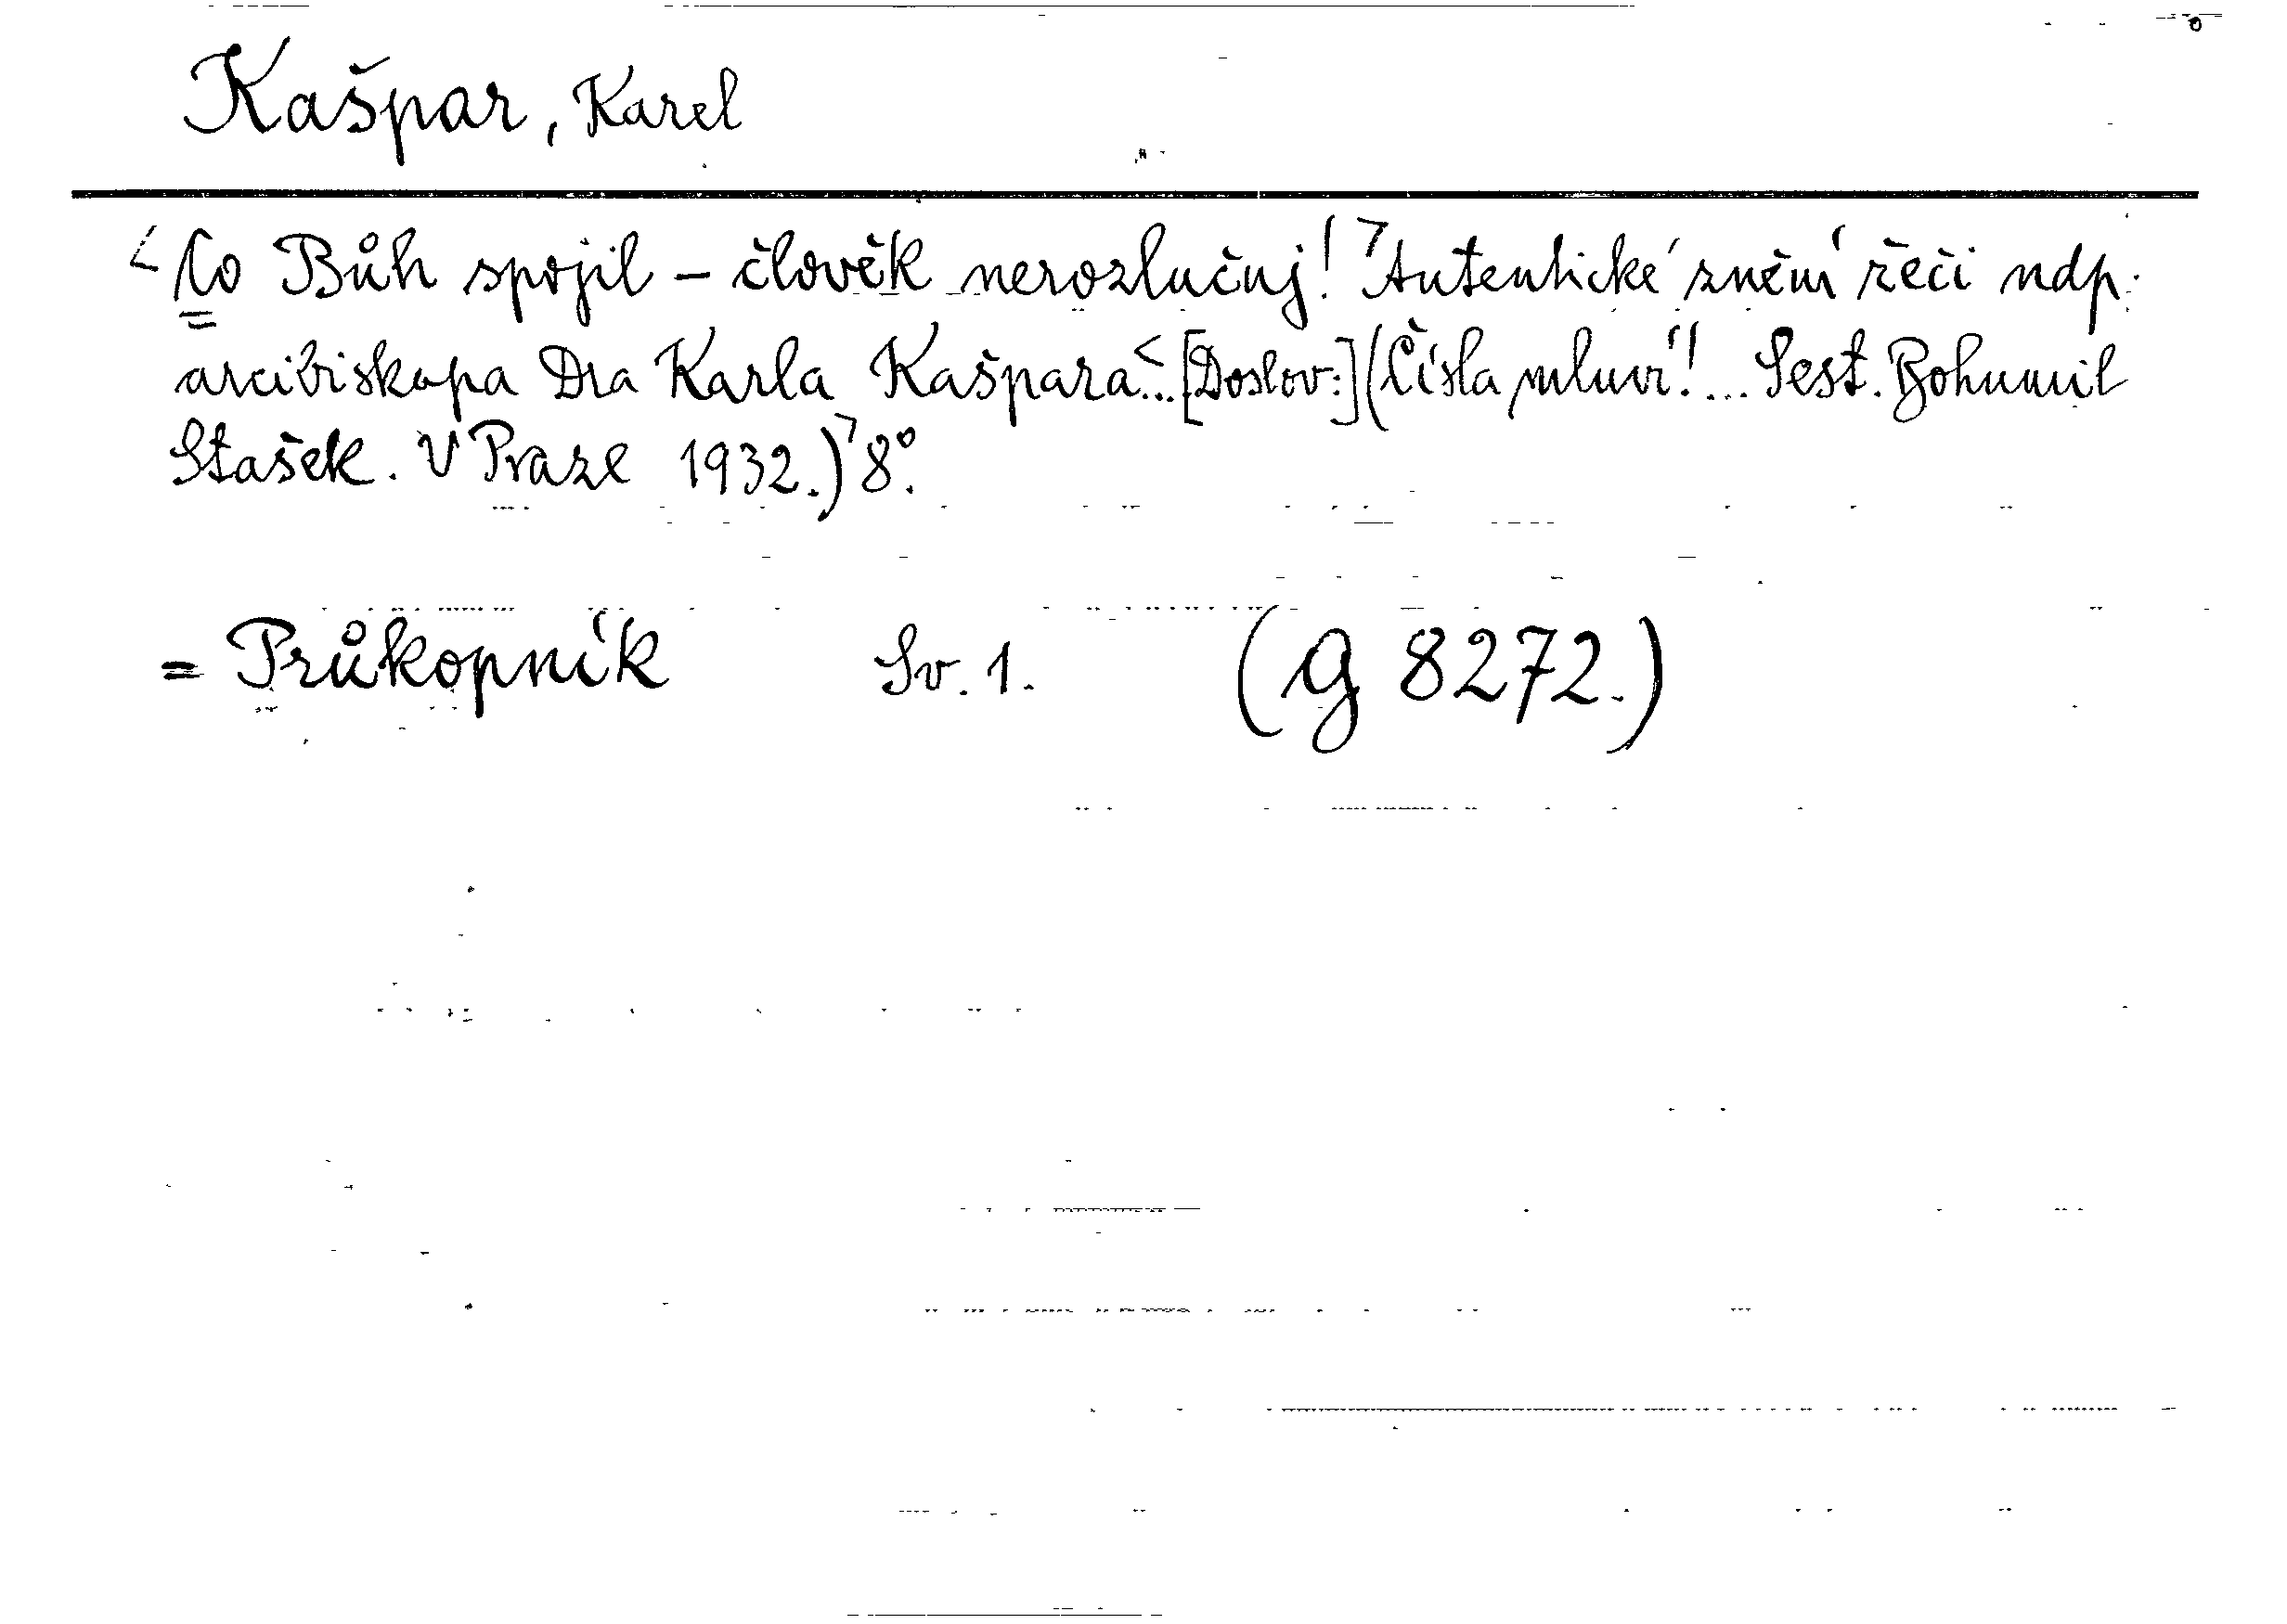 Kašpar, Karel
<Co Bůh spojil – člověk nerozlučuj!> Autentické znění řeči ndp.
arcibiskupa Dra Karla Kašpara<... [Doslov:] (Čísla mluví! ... Sest. Bohumil
Stašek. V Praze 1932.)> 8°.
= Průkopník Sv. 1. (g 8272.)